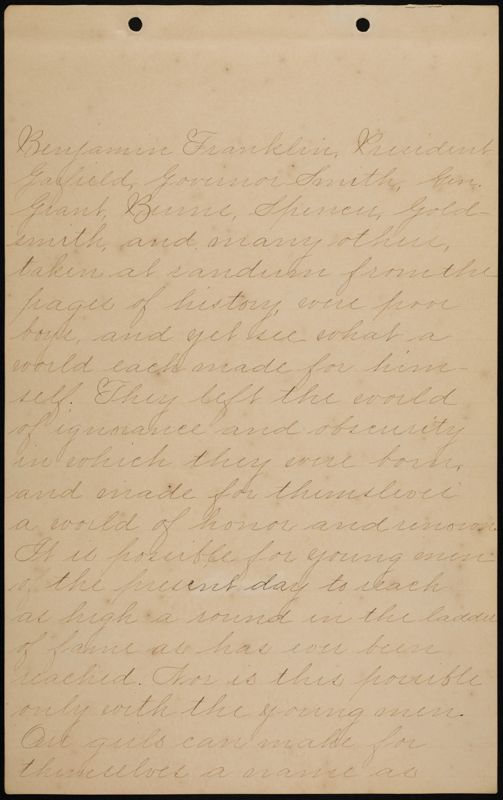 Benjamin Franklin, President
Garfield, Governor Smith, Gen.
Grant, Burns, Spencer, Gold-
smith, and many others,
taken at random from the
pages of history, were poor
boys, and yet see what a
world each made for him-
self. They left the world
of ignorance and obscurity
in which they were born,
and made for themslves
a world of honor and renown.
It is possible for young men
of the present day to reach
as high a round in the ladder
of fame as has ever been
reached. Nor is this possible
only with the young men.
Our girls can make for
themselves a name as